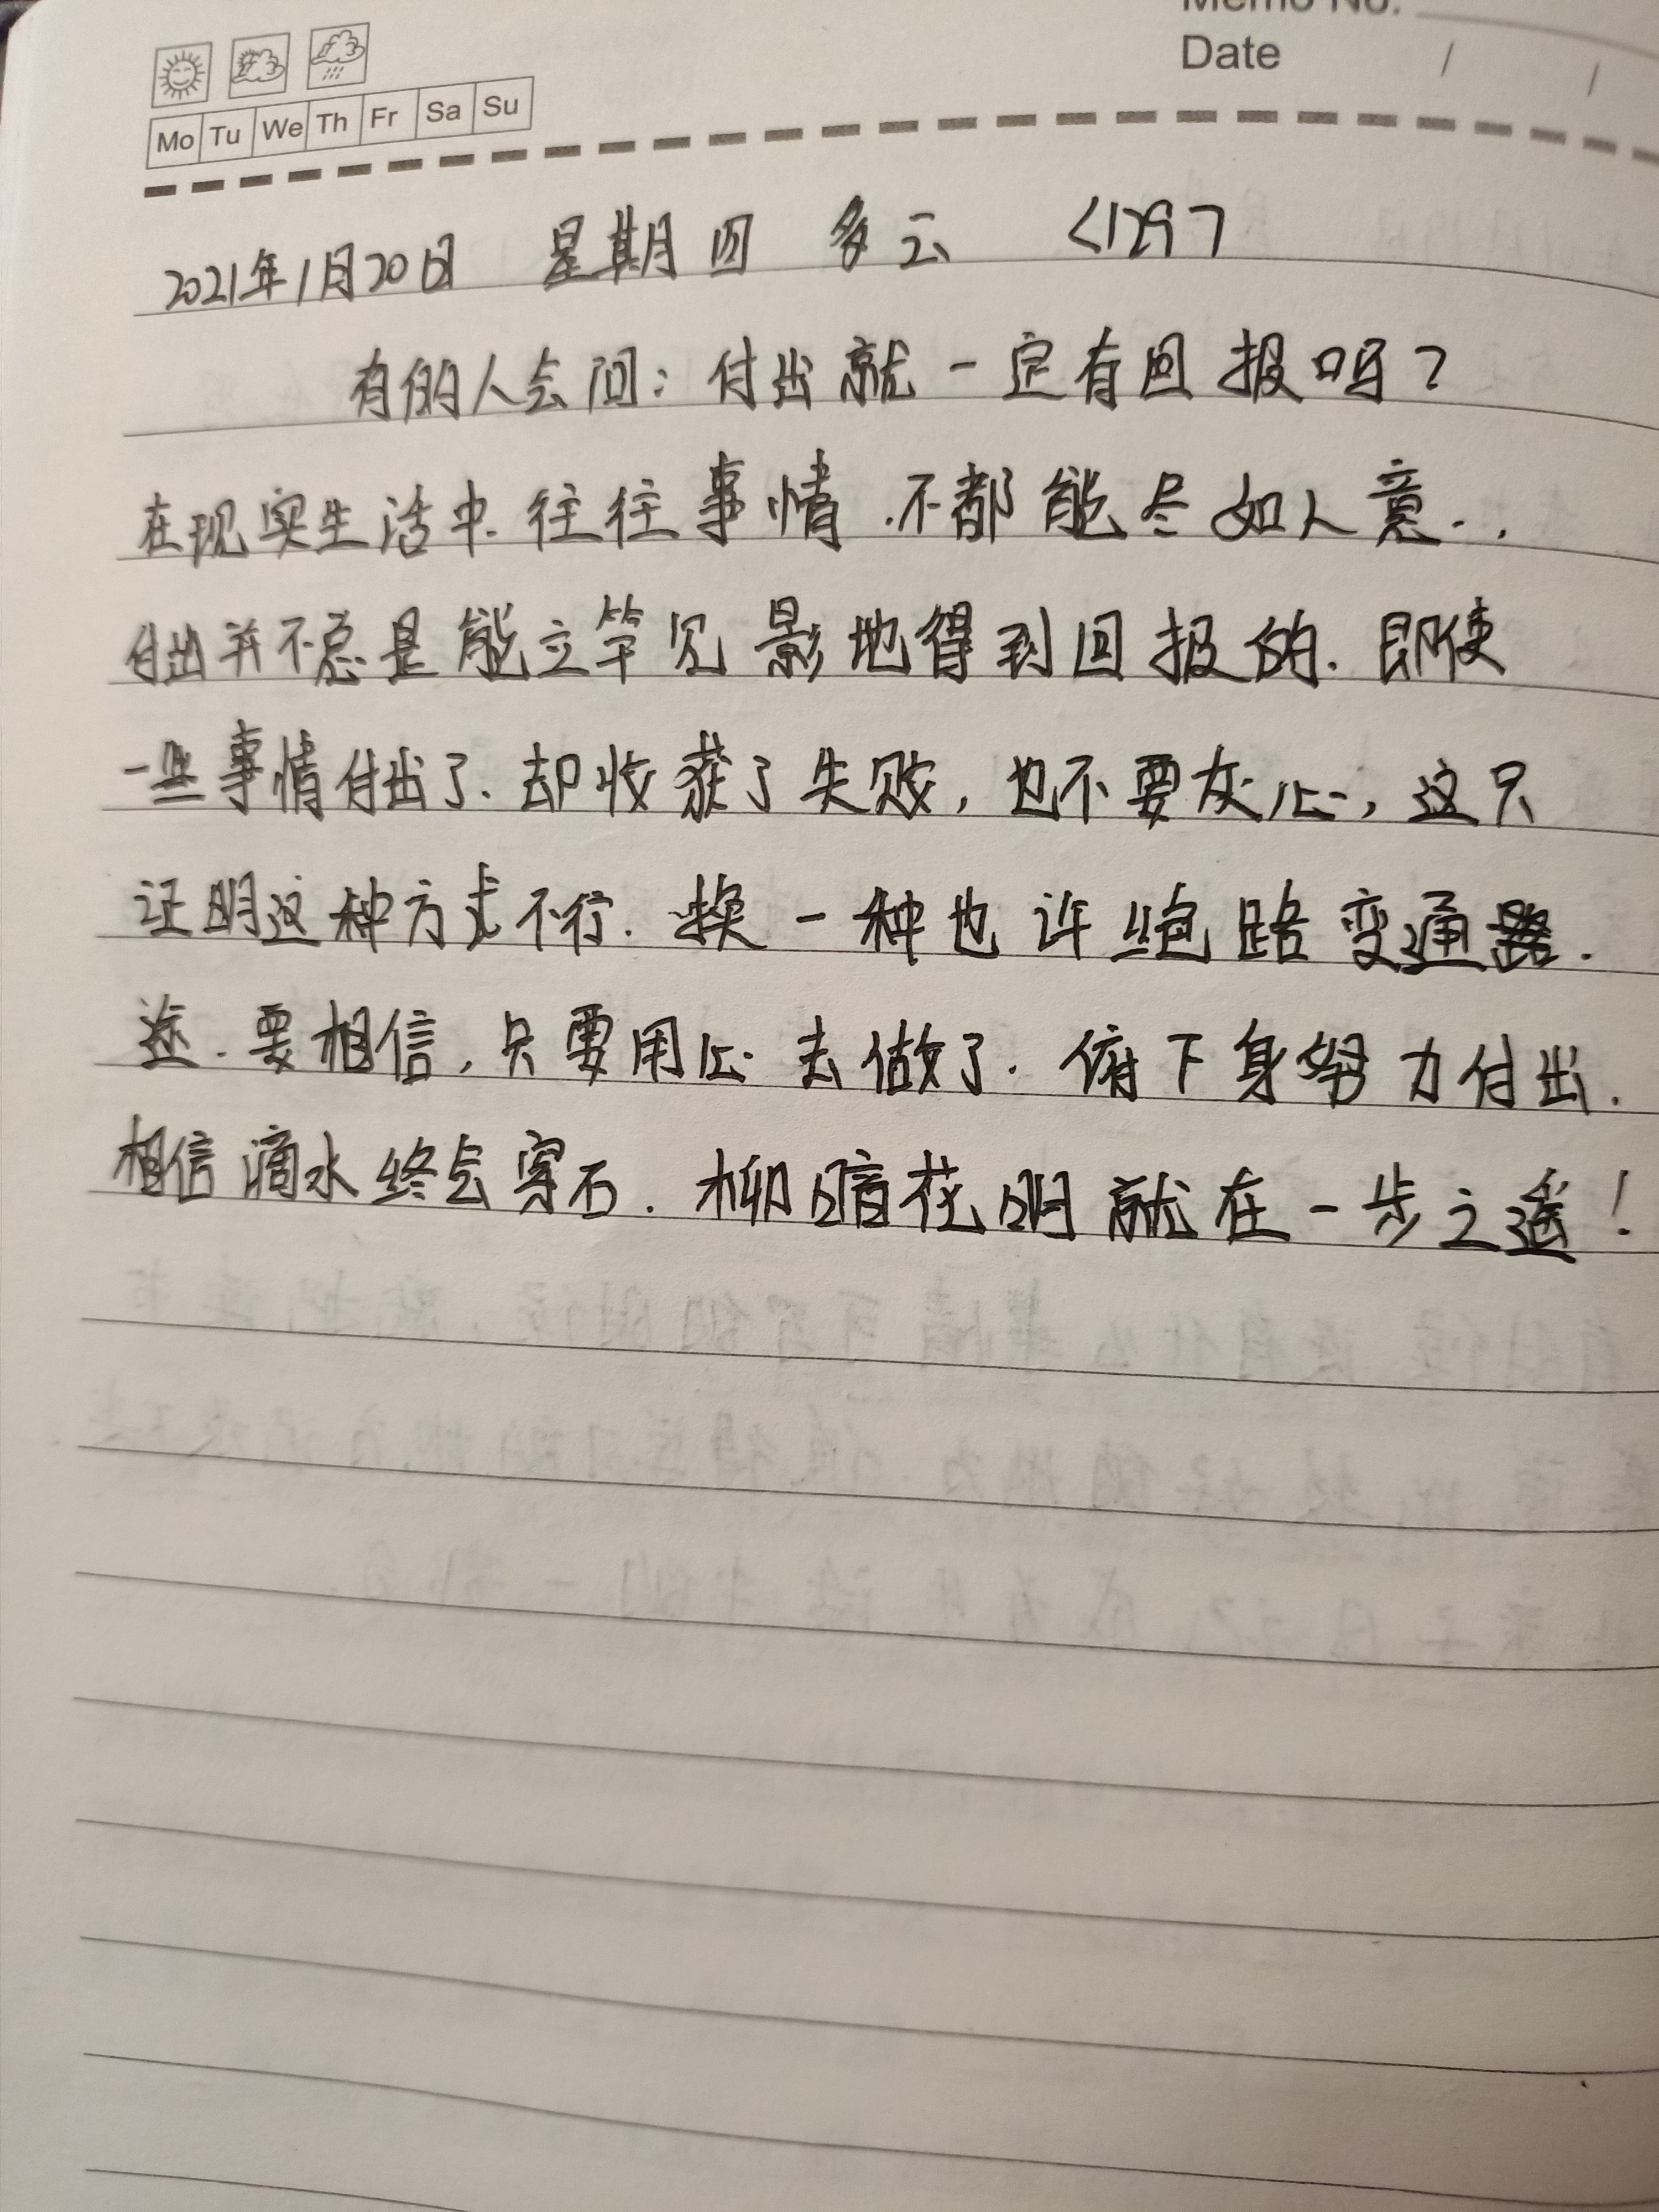 Memo No.
Date / /
Mo Tu We Th Fr Sa Su
2021年1月20日 星期四 多云 <129>
有的人会问:付出就一定有回报吗?
在现实生活中.往往事情.不都能尽如人意...
付出并不总是能立竿见影地得到回报的.即使
一些事情付出了.却收获了失败,也不要灰心,这只
证明这种方式不行.换一种也许绝路变通.
途.要相信,只要用心去做了.俯下身努力付出.
相信滴水终会穿石.柳暗花明就在一步之遥!